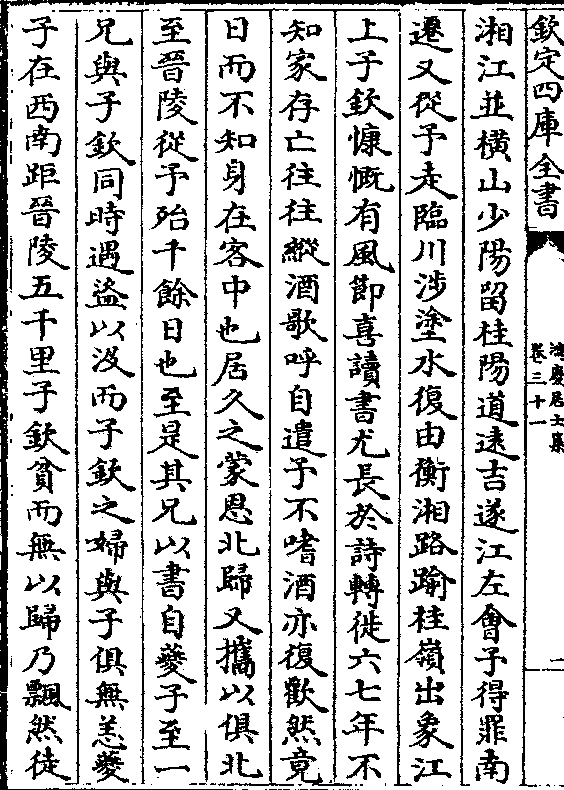 欽定四庫全書
鴻慶居士集
卷三十一
二
湘江並橫山少陽留桂陽道遠吉遂江左會予得罪南
遷又從予走臨川涉塗水復由衡湘路踰桂嶺出象江
上子欽慷慨有風節喜讀書尤長於詩轉徙六七年不
知家存亡往往縱酒歌呼自遣予不嗜酒亦復歡然竟
日而不知身在客中也居久之蒙恩北歸又攜以俱北
至晉陵從予殆千餘日也至是其兄以書自夔子至一
兄與子欽同時遇盜以沒而子欽之婦與子俱無恙夔
子在西南距晉陵五千里子欽貧而無以歸乃飄然徒